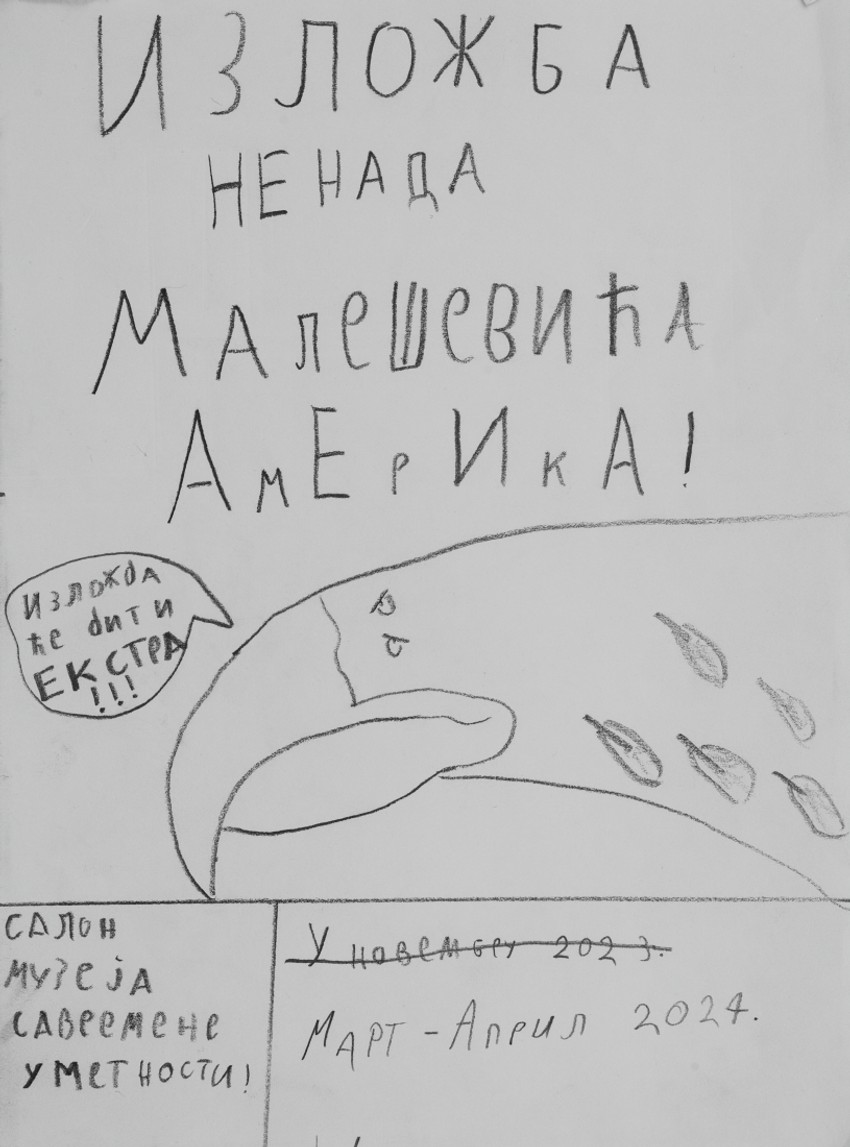 ИЗЛОЖБА
НЕНАДА
МАЛЕШЕВИЋА
АМЕРИКА!
ИЗЛОЖБА
ће бити
ЕКСТРА
!!!
САЛОН
МУЗЕЈА
САВРЕМЕНЕ
УМЕТНОСТИ!
У НОВЕМБРУ 2023.
МАРТ - АПРИЛ 2024.